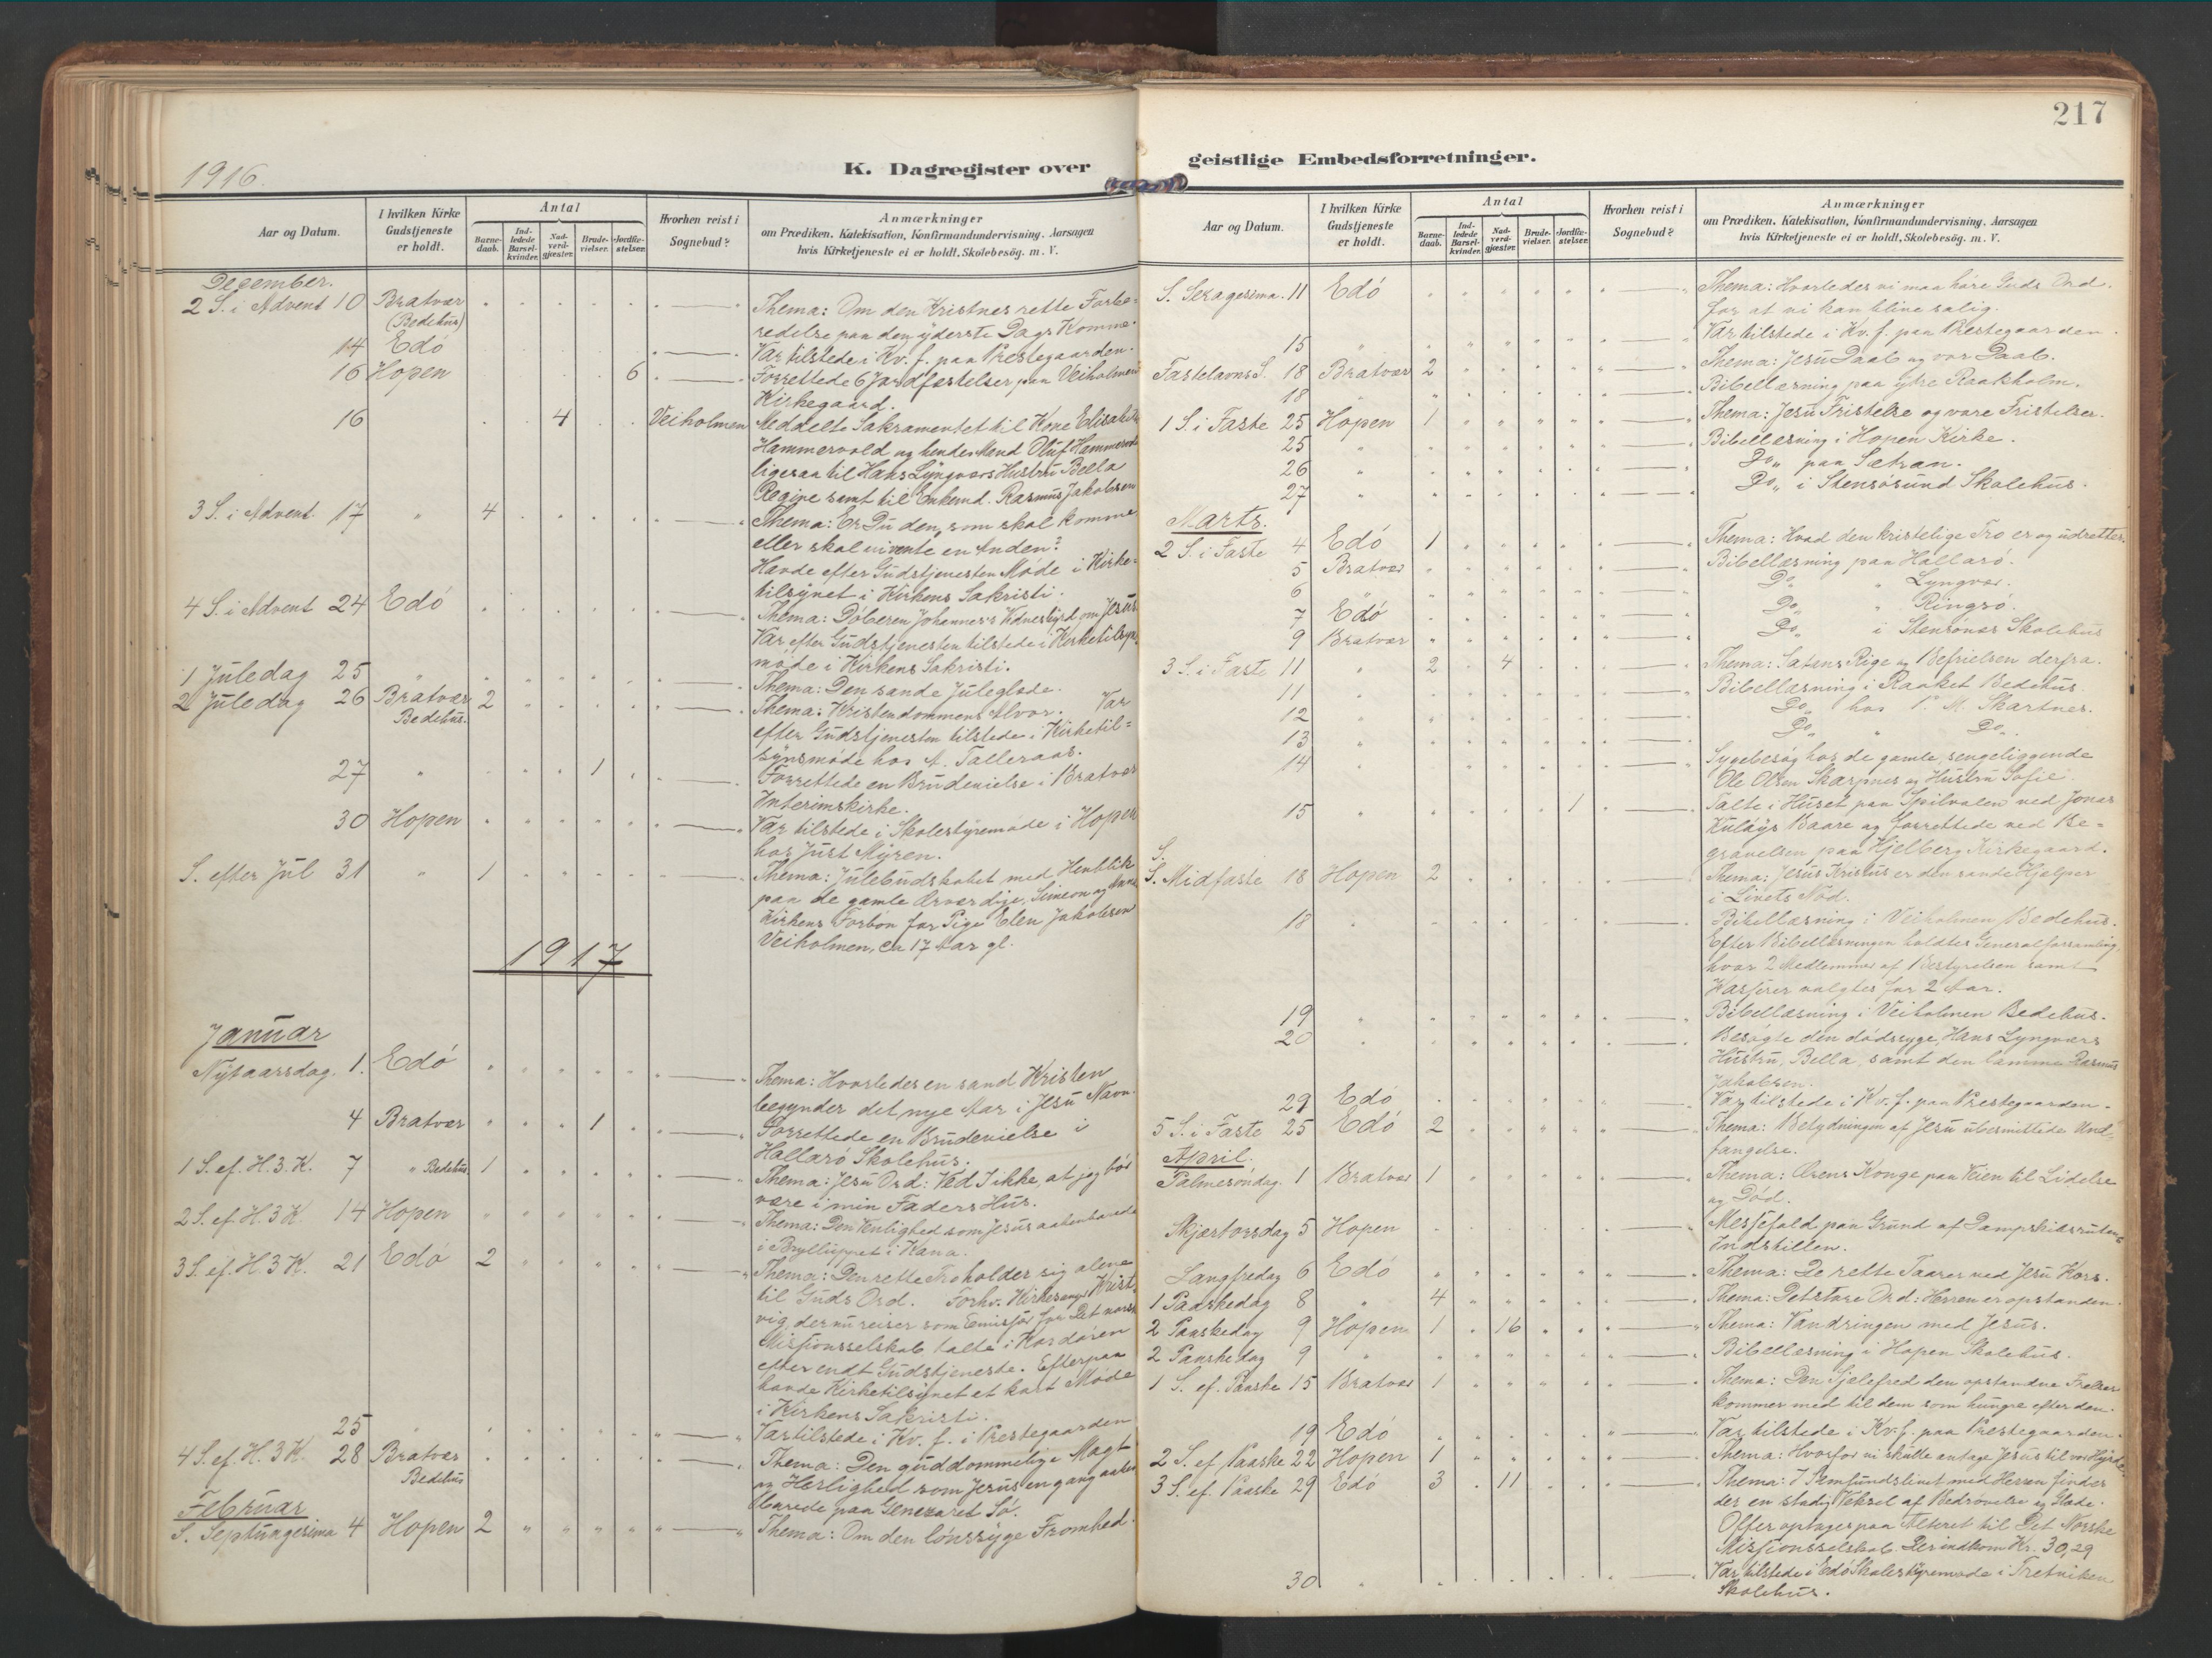 217
1916.
K. Dagregister over geistlige Embedsforretninger.
Aar og Datum.
I hvilken Kirke Gudstjeneste er holdt.
Antal
Barne-daab.
Ind-ledede Barsel-kvinder.
Nad-verd-gjæster.
Brude-vielser.
Jordfæ-stelser.
Hvorhen reist i Sognebud?
Anmærkninger
om Prædiken. Katekisation, Konfirmandundervisning. Aarsagen
hvis Kirketjeneste ei er holdt. Skolebesög. m. V.
December.
2 S. i Advent 10 Bratvær (Bedehus) Thema: Om den Kristnes rette Forbe-
redelse paa den yderste Dags Komme.
14 Edö Var tilstede i Kv. f. paa Prestegaarden.
16 Hopen 6 Forrettede 6 Jordfæstelser paa Veiholmen
Kirkegaard.
16 4 Veiholmen Meddelte Sakramentet til Kone Elisabeth
Hammervold og hendes Mand Oluf Hammervold
ligesaa til Hans Lyngværs Hustru Bella
Regine samt til Enkemd. Rasmus Jakobsen
3 S. i Advent. 17 " 4 Thema: Er Du den, som skal komme
eller skal vi vente en Anden?
Havde efter Gudstjenesten Möde i Kirke-
tilsynet i Kirkens Sakristi.
4 S. i Advent 24 Edö Thema: Döberen Johannes's Vidnesbyrd om Jesus
Var efter Gudstjenesten tilstede i Kirketilsyns
möde i Kirkens Sakristi.
1 Juledag 25 " Thema: Den sande Juleglæde.
2 Juledag 26 Bratvær Bedehus. 2 Thema: Kristendommens Alvor. Var
efter Gudstjenesten tilstede i Kirketil-
synsmöde hos A. Talleraas.
27 " 1 Forrettede en Brudevielse i Bratvær
Interimskirke.
30 Hopen Var tilstede i Skolestyremöde i Hopen
hos Just Myren.
S. efter Jul 31 " 1 Thema: Julebudskabet med Henblik
paa de gamle ærværdige, Simeon og Anna
Kirkens Forbön for Pige Elen Jakobsen
Veiholmen, ca 17 Aar gl.
1917
Januar
Nytaarsdag 1. Edö Thema: Hvorledes en sand Kristen
begynder det nye Aar i Jesu Navn.
4 Bratvær 1 Forrettede en Brudevielse i
Hallarö Skolehus.
1 S. ef. H. 3. K. 7 " Bedehus 1 Thema: Jesu Ord: Ved I ikke, at jeg bör
være i min Faders Hus.
2 S. ef. H. 3 K. 14 Hopen Thema: Den Venlighed som Jesus aabenbarede
i Brylluppet i Kana.
3 S. ef. H. 3 K. 21 Edö 2 Thema: Den rette Tro holder sig alene
til Guds Ord. Forhv. Kirkesanger Krist-
vig, der nu reiser som Emisjær for Det norske
Misjionsselskab talte i Kordören
efter endt Gudstjeneste. Efterpaa
havde Kirketilsynet et kort Möde
i Kirkens Sakristi.
25 " Var tilstede i Kv. f. i Prestegaarden
4 S. ef. H. 3 K. 28 Bratvær Bedehus Thema: Den guddommelige Magt
og Herlighed som Jesus engang aaben
barede paa Genezaret Sö.
Februar
S. Septuagesima 4 Hopen 2 Thema: Om den lönssyge Fromhed.
Aar og Datum.
I hvilken Kirke Gudstjeneste er holdt.
Antal
Barne-daab.
Ind-ledede Barsel-kvinder.
Nad-verd-gjæster.
Brude-vielser.
Jordfæ-stelser.
Hvorhen reist i Sognebud?
Anmærkninger
om Prædiken. Katekisation, Konfirmandundervisning. Aarsagen
hvis Kirketjeneste ei er holdt. Skolebesög. m. V.
S. Sexagesima. 11 Edö Thema: Hvorledes vi maa höre Guds Ord.
for at vi kan blive salig.
15 " Var tilstede i Kv. f. paa Prestegaarden.
Fastelavns S. 18 Bratvær 2 Thema: Jesu Daab og vor Daab.
18 " Bibellæsning paa ytre Raakholm.
1 S. i Faste 25 Hopen 1 Thema: Jesu Fristelse og vore Fristelser.
25 " Bibellæsning i Hopen Kirke.
26 " Do " paa Sætran.
27 " Do " i Stensösund Skolehus.
Marts.
2 S. i Faste 4 Edö 1 Thema: Hvad den kristelige Tro er og udretter.
5 Bratvær Bibellæsning paa Hallarö.
6 " Do " Lyngvær.
7 Edö Do " Ringsö.
9 Bratvær Do " i Stensönes Skolehus
3 S. i Faste 11 " 2 4 Thema: Satans Rige og Befrielsen derfra.
11 " Bibellæsning i Raaket Bedehus.
12 " Do " hos P. M. Skartnes.
13 " Do " Do "
14 " Sygebesög hos de gamle, sengeliggende
Ole Olsen Skarpnes og Hustru Sofie.
15 " 1 Talte i Huset paa Spilvalen ved Jonas
Kulöys Baare og forrettede ved Be-
gravelsen paa Hjelberg Kirkegaard.
S.
S. Midfaste 18 Hopen 2 Thema: Jesus Kristus er den sande Hjelper
i Livets Nöd.
18 " Bibellæsning i Veiholmen Bedehus.
Efter Bibellæsningen holdtes Generalforsamling,
hvor 2 Medlemmer af Bestyrelsen samt
Kasserer valgtes for 2 Aar.
19 " Bibellæsning i Veiholmen Bedehus.
20 " Besögte den dödssyge, Hans Lyngværs
Hustru, Bella, samt den lamme Rasmus
Jakobsen.
29 Edö Var tilstede i Kv. f. paa Prestegaarden.
5 S. i Faste 25 Edö 2 Thema: Betydningen af Jesu ubesmittede Und-
fangelse.
April.
Palmesöndag. 1 Bratvær 1 Thema: Ærens Konge paa Veien til Lidelse
og Död.
Skjærtorsdag 5 Hopen Messefald paa Grund af Dampskibsrutens
Indstillen.
Langfredag 6 Edö Thema: De rette Taarer ved Jesu Kors.
1 Paaskedag 8 " 4 Thema: Det store Ord: Herren er opstanden.
2 Paaskedag 9 Hopen 1 16 Thema: Vandringen med Jesus.
2 Paaskedag 9 " Bibellæsning i Hopen Skolehus.
1 S. ef. Paaske 15 Bratvær 1 Thema: Den Sjelefred den opstandne Frelser
kommer med til dem som hungre efter den.
19 Edö Var tilstede i Kv. f. paa Prestegaarden.
2 S. ef Paaske 22 Hopen 1 Thema: Hvorfor vi skulle antage Jesus til vor Hyrde.
3 S. ef. Paaske 29 Edö 3 11 Thema: I Samfundslivet med Herren finder
der en stadig Veksel af Bedrövelse og Glæde.
Offer optages paa Alteret til Det Norske
Misjionsselskab. Der indkom Kr. 30,29
30 " Var tilstede i Edö Skolestyremöde i Tretviken
Skolehus.